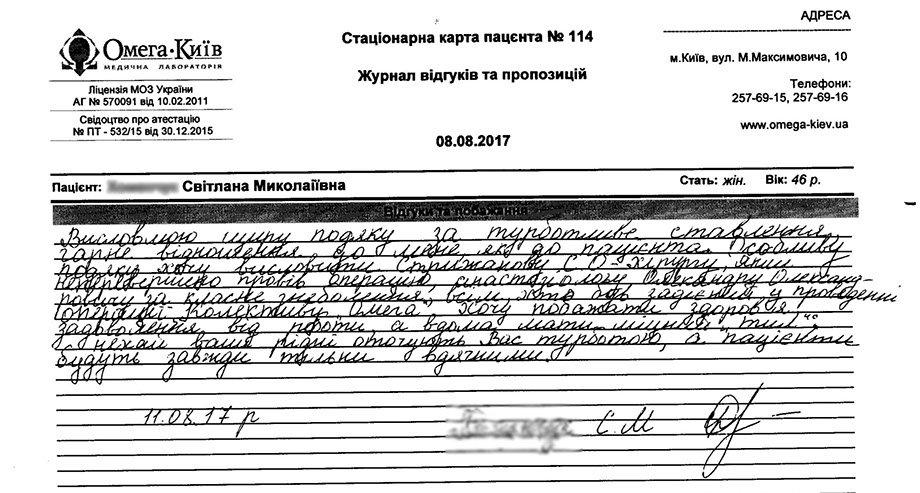 Омега·Київ
МЕДИЧНА ЛАБОРАТОРІЯ
Ліцензія МОЗ України
АГ № 570091 від 10.02.2011
Свідоцтво про атестацію
№ ПТ - 532/15 від 30.12.2015
Стаціонарна карта пацєнта № 114
Журнал відгуків та пропозицій
08.08.2017
АДРЕСА
м.Київ, вул. М.Максимовича, 10
Телефони:
257-69-15, 257-69-16
www.omega-kiev.ua
Пацієнт: Світлана Миколаіївна
Стать: жін. Вік: 46 р.
Відгуки та побажання
Висловлюю щиру подяку за турботливе ставлення,
гарне відношення до мене як до пацієнта. Особливу
подяку хочу висловити Стрижакову С.О. - хірургу, який
неперевершено провів операцію, анастезіологу Олександру Олександ-
ровичу за класне знеболення, всім, хто був задіяний у проведенні
операції. Колективу "Омега" хочу побажати здоров'я,
задоволення від роботи, а вдома мати міцний "тил".
Нехай ваші рідні оточують Вас турботою, а пацієнти
будуть завжди тільки вдячними.
11.08.17 р
С.М